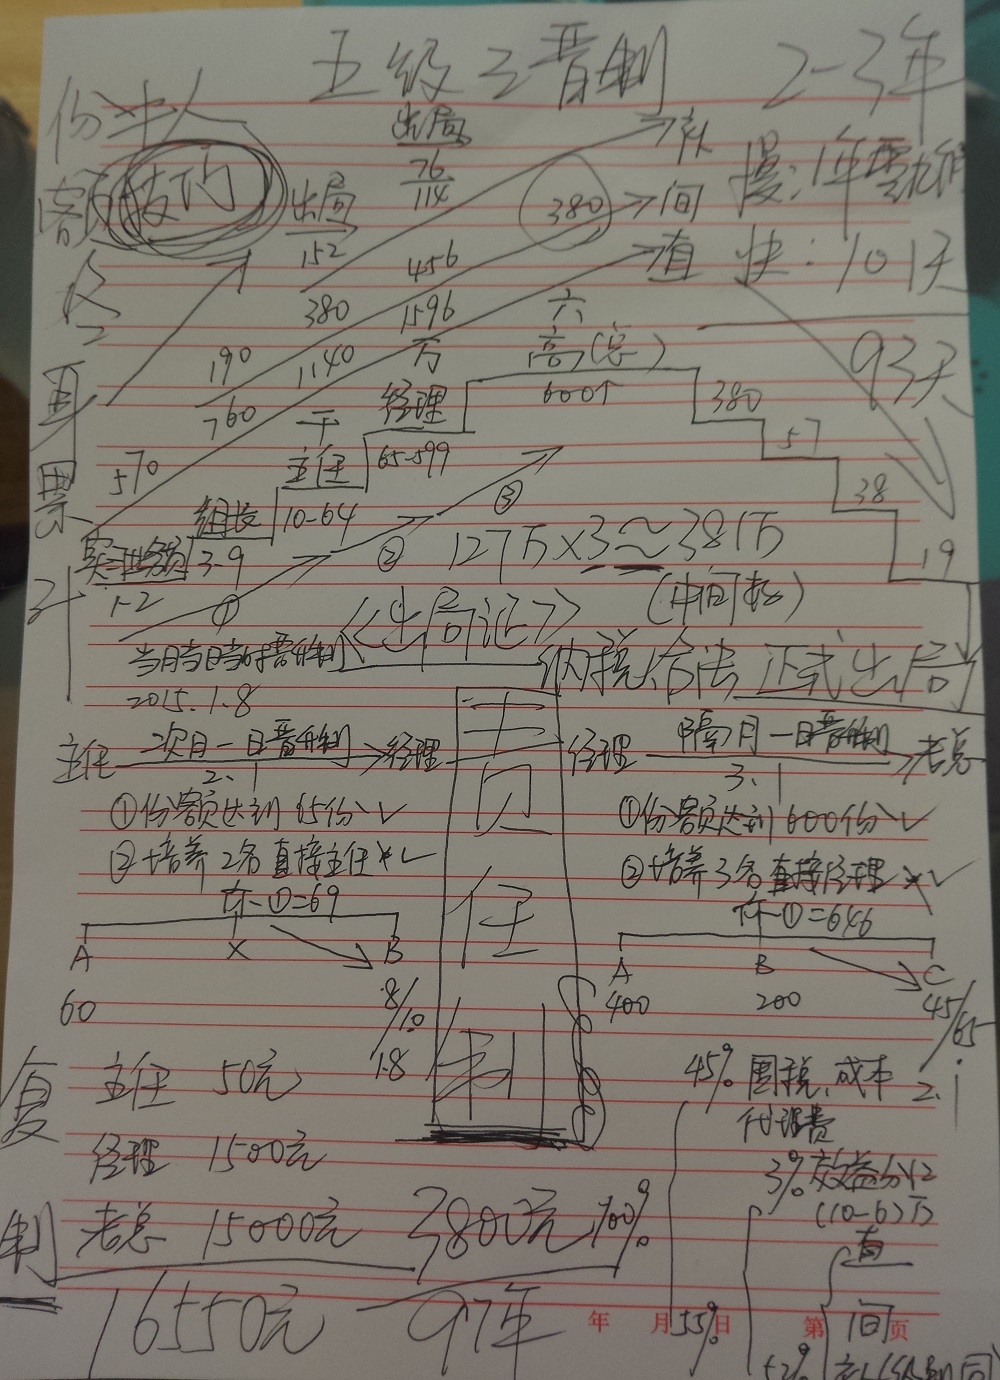 五级三晋制
2-3年
份
人
额
出局
76
114
补
慢:1年零
出局
380
间
152
456
值
快:101天
380
1596
六
93天
190
1140
万
高(总)
再
760
600↑
380
干
经理
票
570
主任
65-599
57
组长
10-64
③
38
实习业务员
3-9
②
127万×3≈381万
19
计
1-2
①
《出局证》
(中间
当月当日当时晋升制
纳税合法 正式出局
2015.1.8
主任
次月一日晋升制
经理
主
经理
隔月一日晋升制
老总
2.1
3.1
①份额达到65份✓
①份额达到600份✓
②培养2名直接主任×✓
②培养3名直接经理×✓
任
-①=69
-①=646
A
X
B
A
B
C
60
8/10
400
200
45/65
1.8
制
2.1
复
主任 50元
45% 国税、成本
代理费
经理 1500元
3%效益分红
(10-6)万
制
老总 15000元
3800元
100%
直
16550元
97年
年 月 日
55%
第 页
间
52%